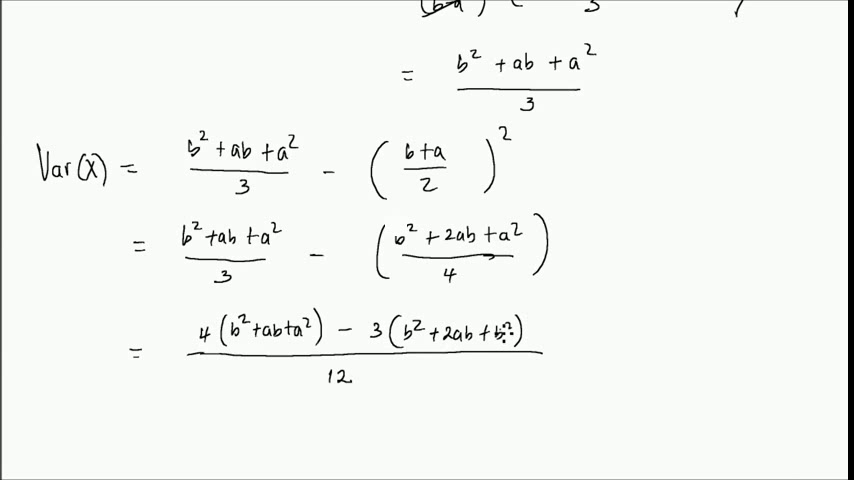 3
= b² + ab + a² / 3
Var(X) = b² + ab + a² / 3 - ( b+a / 2 )²
= b² + ab + a² / 3 - ( b² + 2ab + a² / 4 )
= 4(b² + ab + a²) - 3(b² + 2ab + b²) / 12